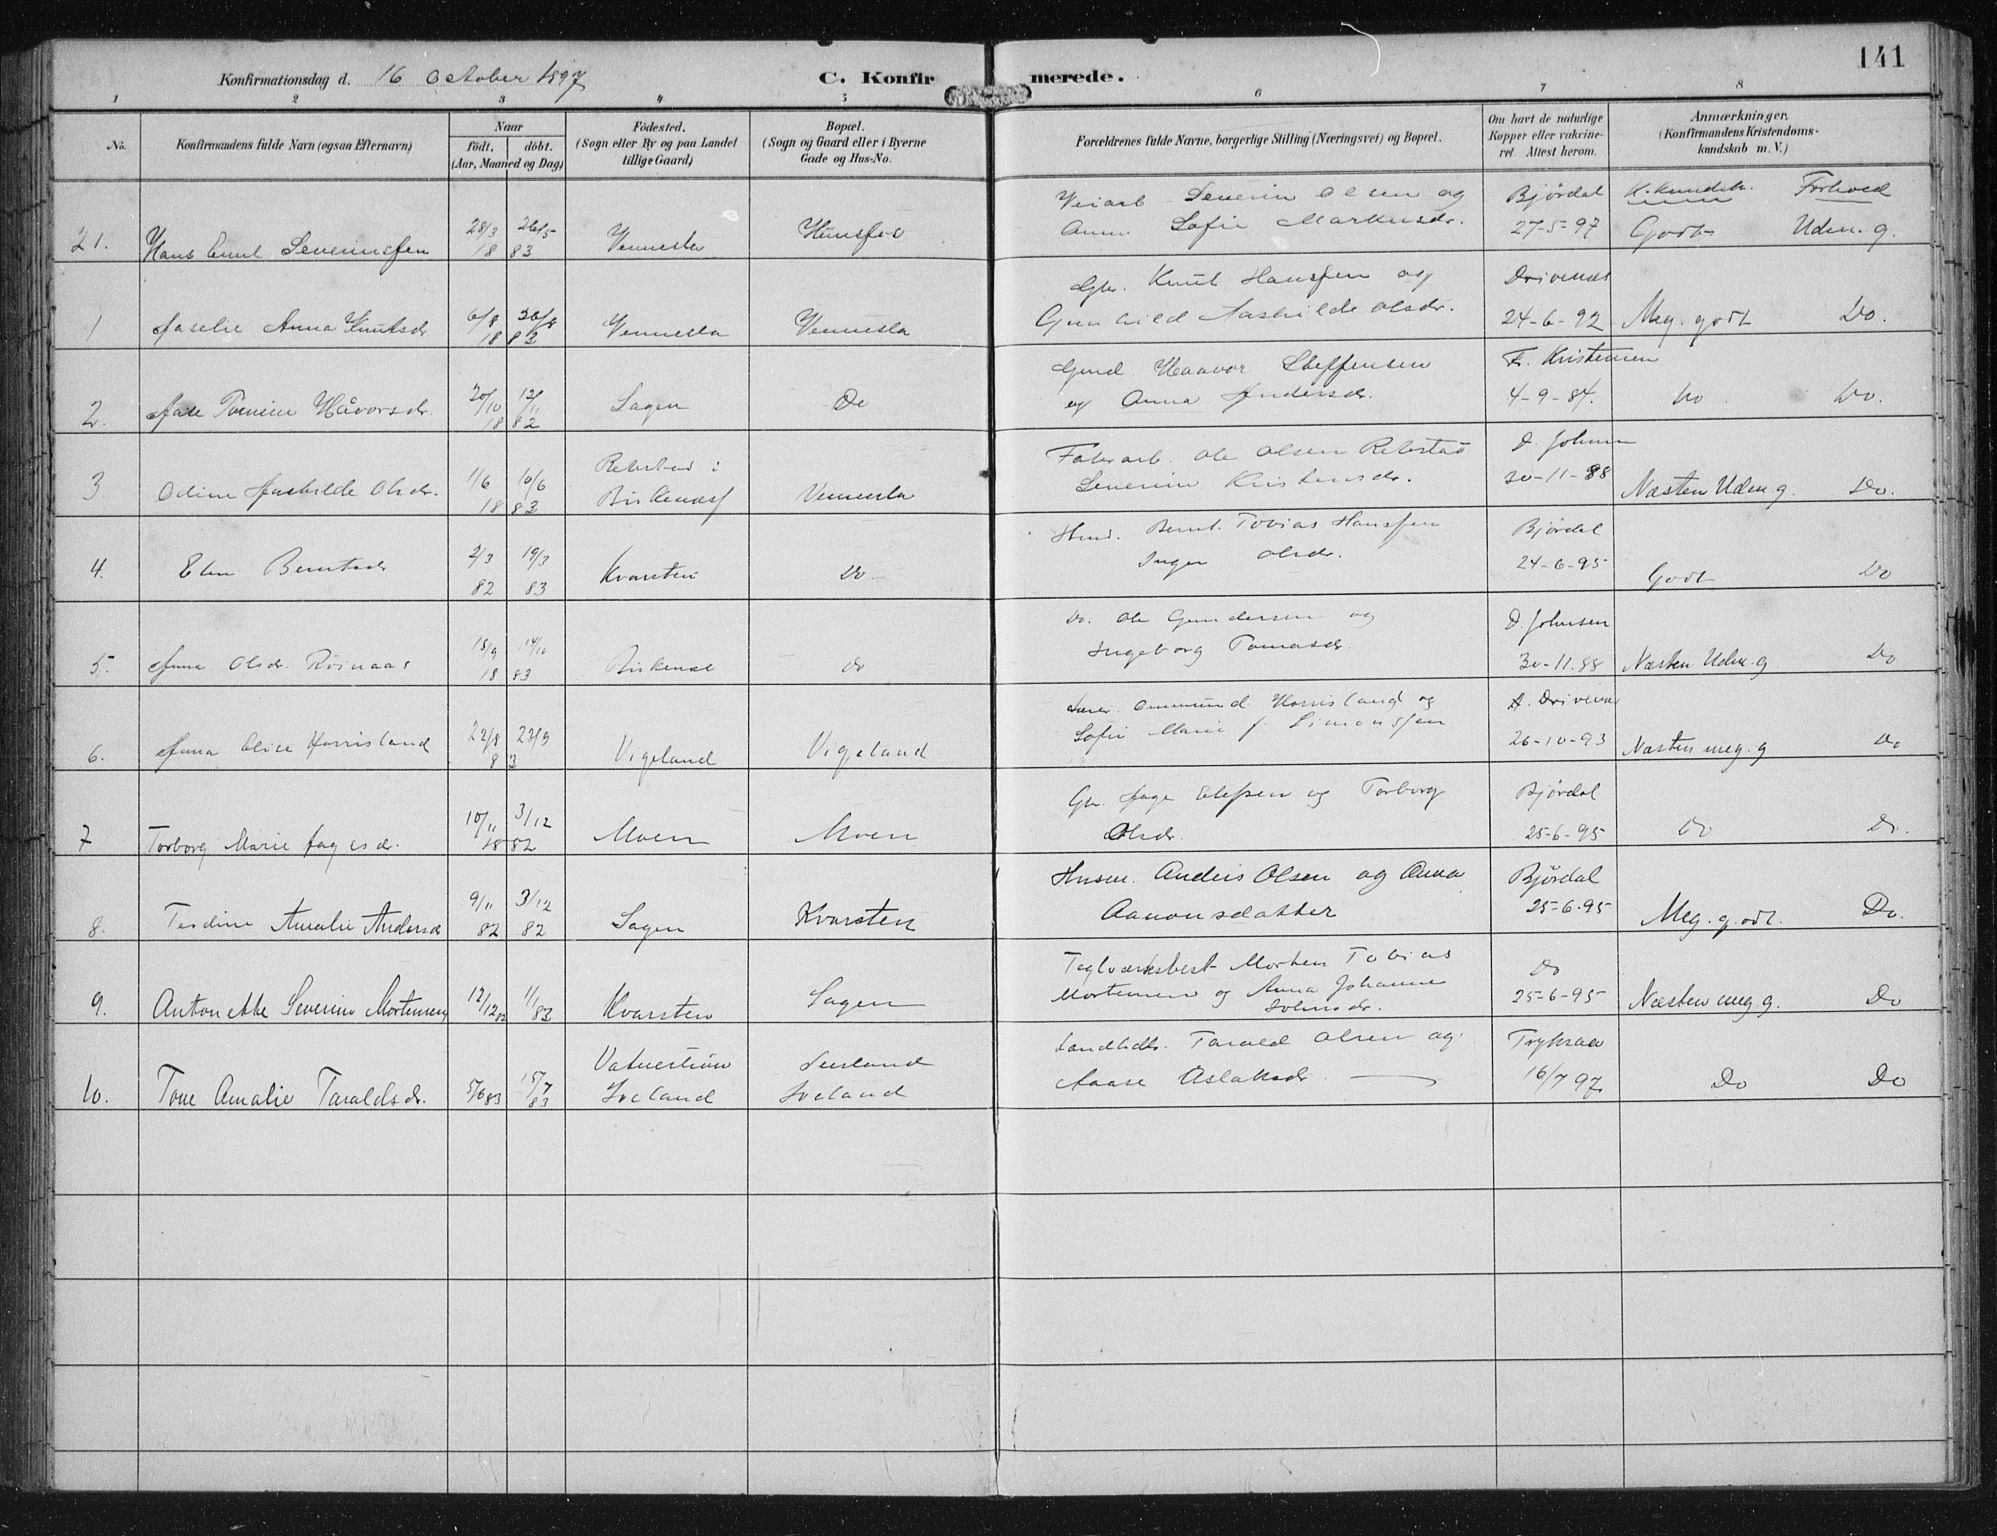 141
Konfirmationsdag d. 16 October 1897
C. Konfirmerede.
1 2 3 4 5 6 7 8
No.
Konfirmandens fulde Navn (ogsaa Efternavn)
Naar
födt. döbt.
(Aar, Maaned og Dag)
Födested.
(Sogn eller By og paa Landet
tillige Gaard)
Bopæl.
(Sogn og Gaard eller i Byerne
Gade og Hus-No.
Forældrenes fulde Navne, borgerlige Stilling (Næringsvei) og Bopæl.
Om havt de naturlige
Kopper eller vakcine-
ret. Attest herom.
Anmærkninger.
(Konfirmandens Kristendoms-
kundskab m. V.)
K. kundsk. Forhold
Veiarb. Severin Olsen og Bjørdal
21. Hans Emil Severinsen 28/3 26/5 Vennesla Hunsfos Anna Sofie Markusdr. 27-5-97 Godt Uden g.
18 83
Gbr. Knut Hansen og Drivenes
1 Aaselie Anna Knutsdr 6/8 26/8 Vennesla Vennesla Gunhild Aashilde Olsdr. 24-6-92 Meg. godt Do.
18 82
Gmd Haavor Steffensen F. Kristensen
2. Aase Tomine Håvorsdr. 20/10 12/11 Sagen Do og Anna Andersdr. 4-9-84. Do Do.
18 82
Fabrarb. Ole Olsen Rebstad D. Johnsen
3 Odine Aashilde Olsdr. 1/6 10/6 Rebstad i Birkenæs Vennesla Severine Kristensdr. 30-11-88 Næsten Uden g. Do.
18 83
Husm. Bernt Tobias Hansen Bjørdal
4. Elen Berntsdr 2/3 19/3 Kvarsten Do Inger Olsdr. 24-6-95 Godt Do
82 83
Do. Ole Gundersen og D. Johnsen
5. Anna Olsdr. Røinaas 15/9 14/10 Birkenæs Do Ingeborg Tomasdr. 30-11.88 Næsten Uden g. Do
18 83
Lærer Ommund Horrisland og A. Drivenes
6. Anna Elise Horrisland 22/8 23/9 Vigeland Vigeland Sofie Marie f. Simonsen 26-10-93 Næsten meg. g Do
8 3
Gbr. Aage Elefsen og Torborg Bjørdal
7 Torborg Marie Aagesdr. 10/11 3/12 Moen Moen Olsdr. 25-6-95 Do Do.
18 82
Husm. Anders Olsen og Anna Bjørdal
8. Terdine Amalie Andersdr 9/11 3/12 Sagen Kvarsten Aanonsdatter 25-6-95 Meg. godt. Do.
82 82
Teglværksbest Morten Tobias Do
9. Antonette Severine Mortensen 12/12 82 1/1 83 Kvarsten Sagen Mortensen og Anna Johanne 25-6-95 Næsten meg. g. Do
Vatnestrøm Landhdlr. Tarald Olsen og Trykraa
10. Tone Amalie Taraldsdr. 5/6 83 15/7 83 Iveland Iveland Aase Aslaksdr. 16/7 97 Do Do